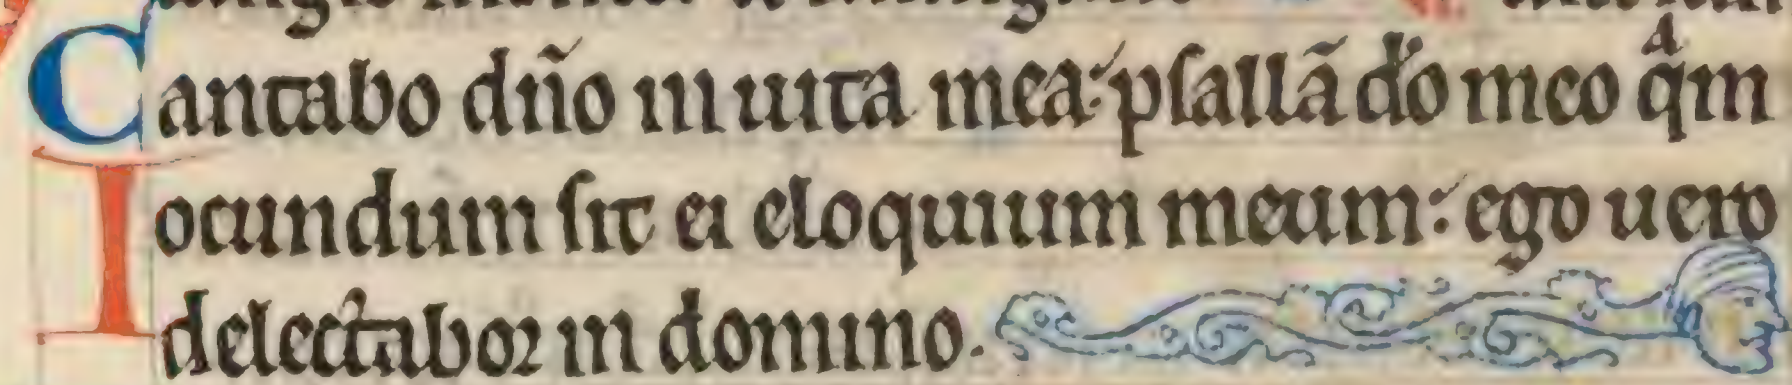 Cantabo dño in uita mea: psallā do meo qͣm
Iocundum sit ei eloquium meum: ego uero
delectabor in domino.